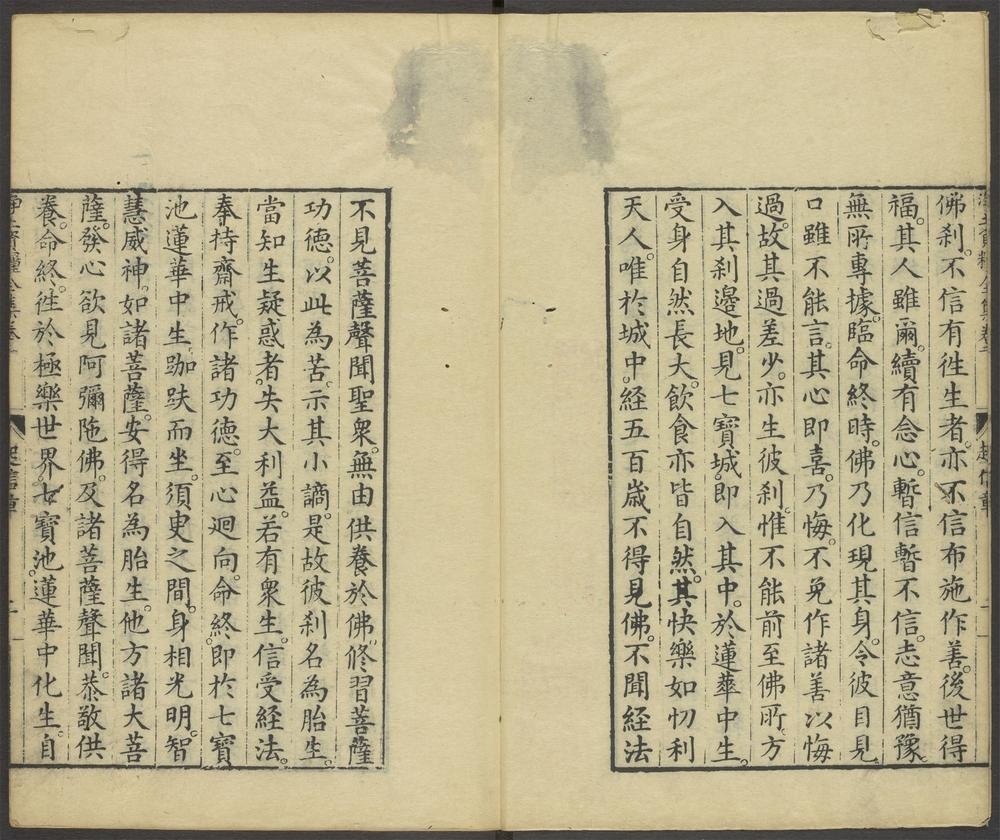 佛刹。不信有徃生者。亦不信布施作善。後世得
福。其人雖爾。續有念心。暫信暫不信。志意猶豫。
無所專據。臨命終時。佛乃化現其身。令彼目見。
口雖不能言。其心即喜。乃悔。不免作諸善以悔
過。故其過差少。亦生彼刹。惟不能前至佛所。方
入其刹邊地。見七寶城。即入其中。於蓮華中生。
受身自然長大。飲食亦皆自然。其快樂如忉利
天人。唯於城中。經五百嵗不得見佛。不聞經法
不見菩薩聲聞聖衆。無由供養於佛。修習菩薩
功德。以此為苦。示其小謫。是故彼刹名為胎生。
當知生疑惑者。失大利益。若有衆生。信受經法。
奉持齋戒。作諸功德。至心迴向。命終。即於七寶
池蓮華中生。跏趺而坐。須臾之間。身相光明。智
慧威神。如諸菩薩。安得名為胎生。他方諸大菩
薩。發心欲見阿彌陁佛。及諸菩薩聲聞。恭敬供
養。命終。徃於極樂世界。七寶池。蓮華中化生。自